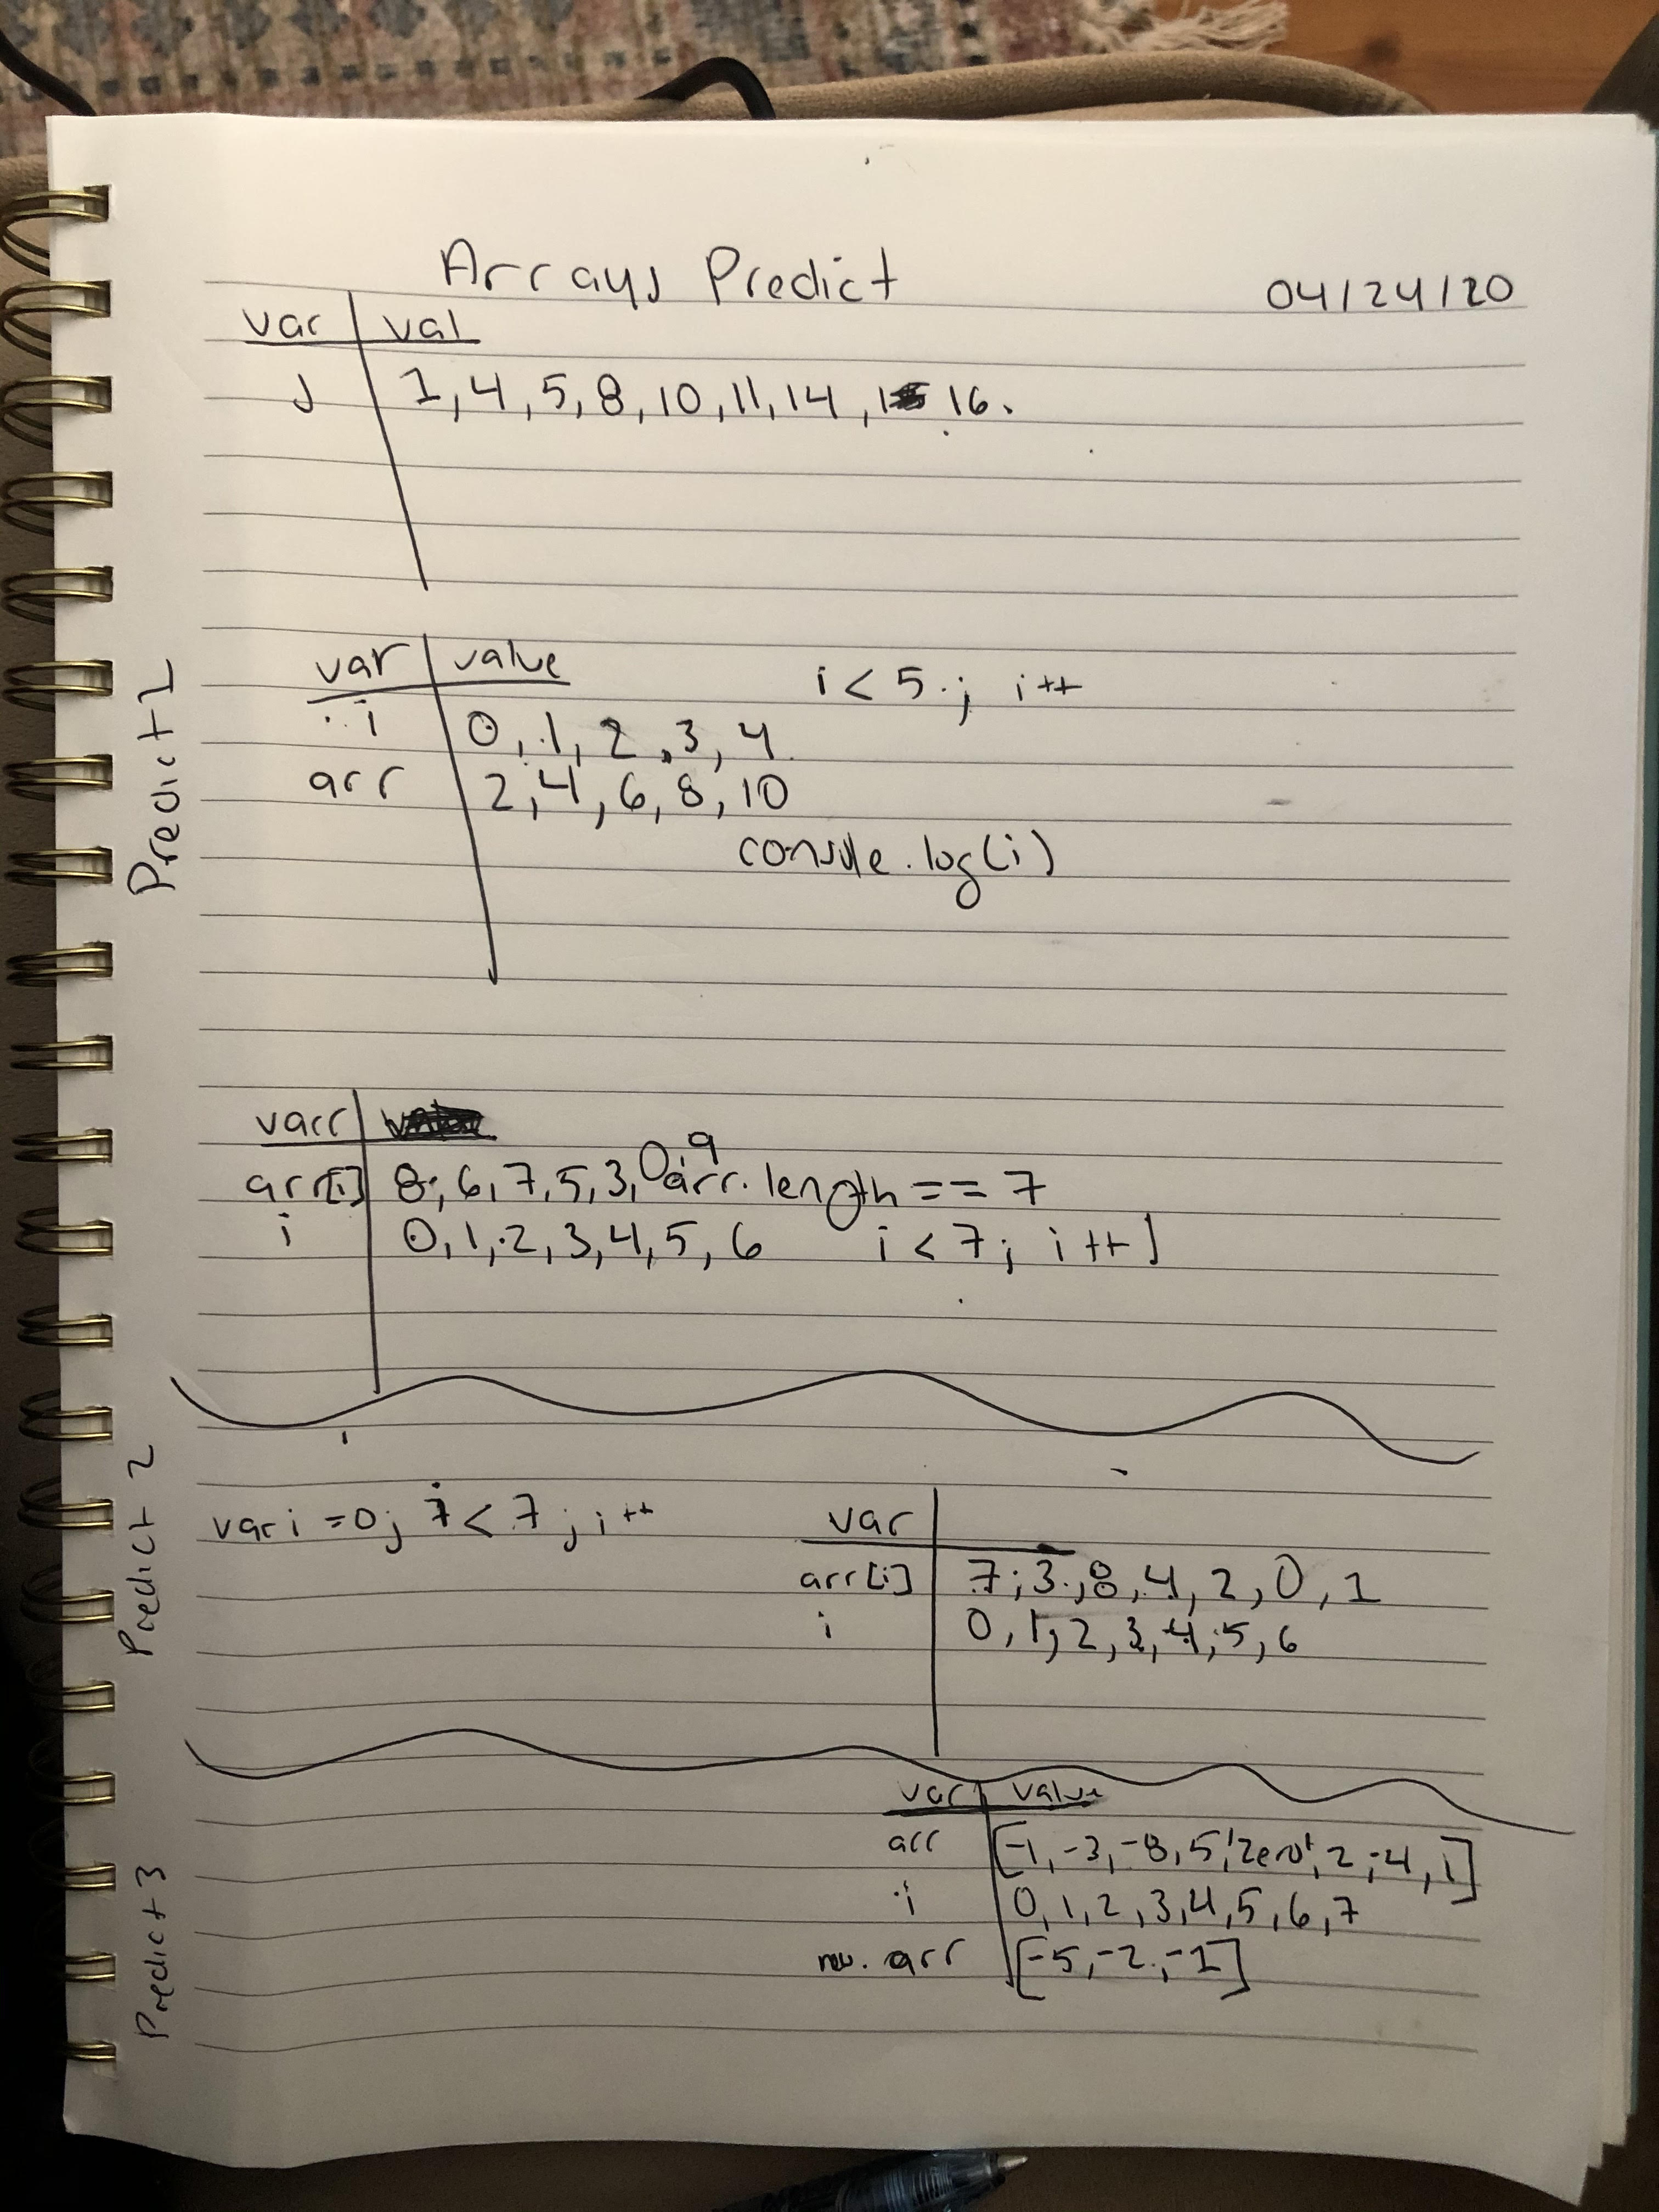 Arrays Predict
04/24/20
var val
J 1, 4, 5, 8, 10, 11, 14, 16.
Predict 1
var value i < 5 ; i++
i 0, 1, 2, 3, 4
arr 2, 4, 6, 8, 10
console.log(i)
varr
arr[i] 8, 6, 7, 5, 3, 0, 9 arr.length == 7
i 0, 1, 2, 3, 4, 5, 6 i < 7; i++]
Predict 2
var i = 0; i < 7; i++
var
arr[i] 7, 3, 8, 4, 2, 0, 1
i 0, 1, 2, 3, 4, 5, 6
Predict 3
var value
arr [-1, -3, -8, 5, 'zero', 2, -4, 1]
i 0, 1, 2, 3, 4, 5, 6, 7
arr [-5, -2, -1]